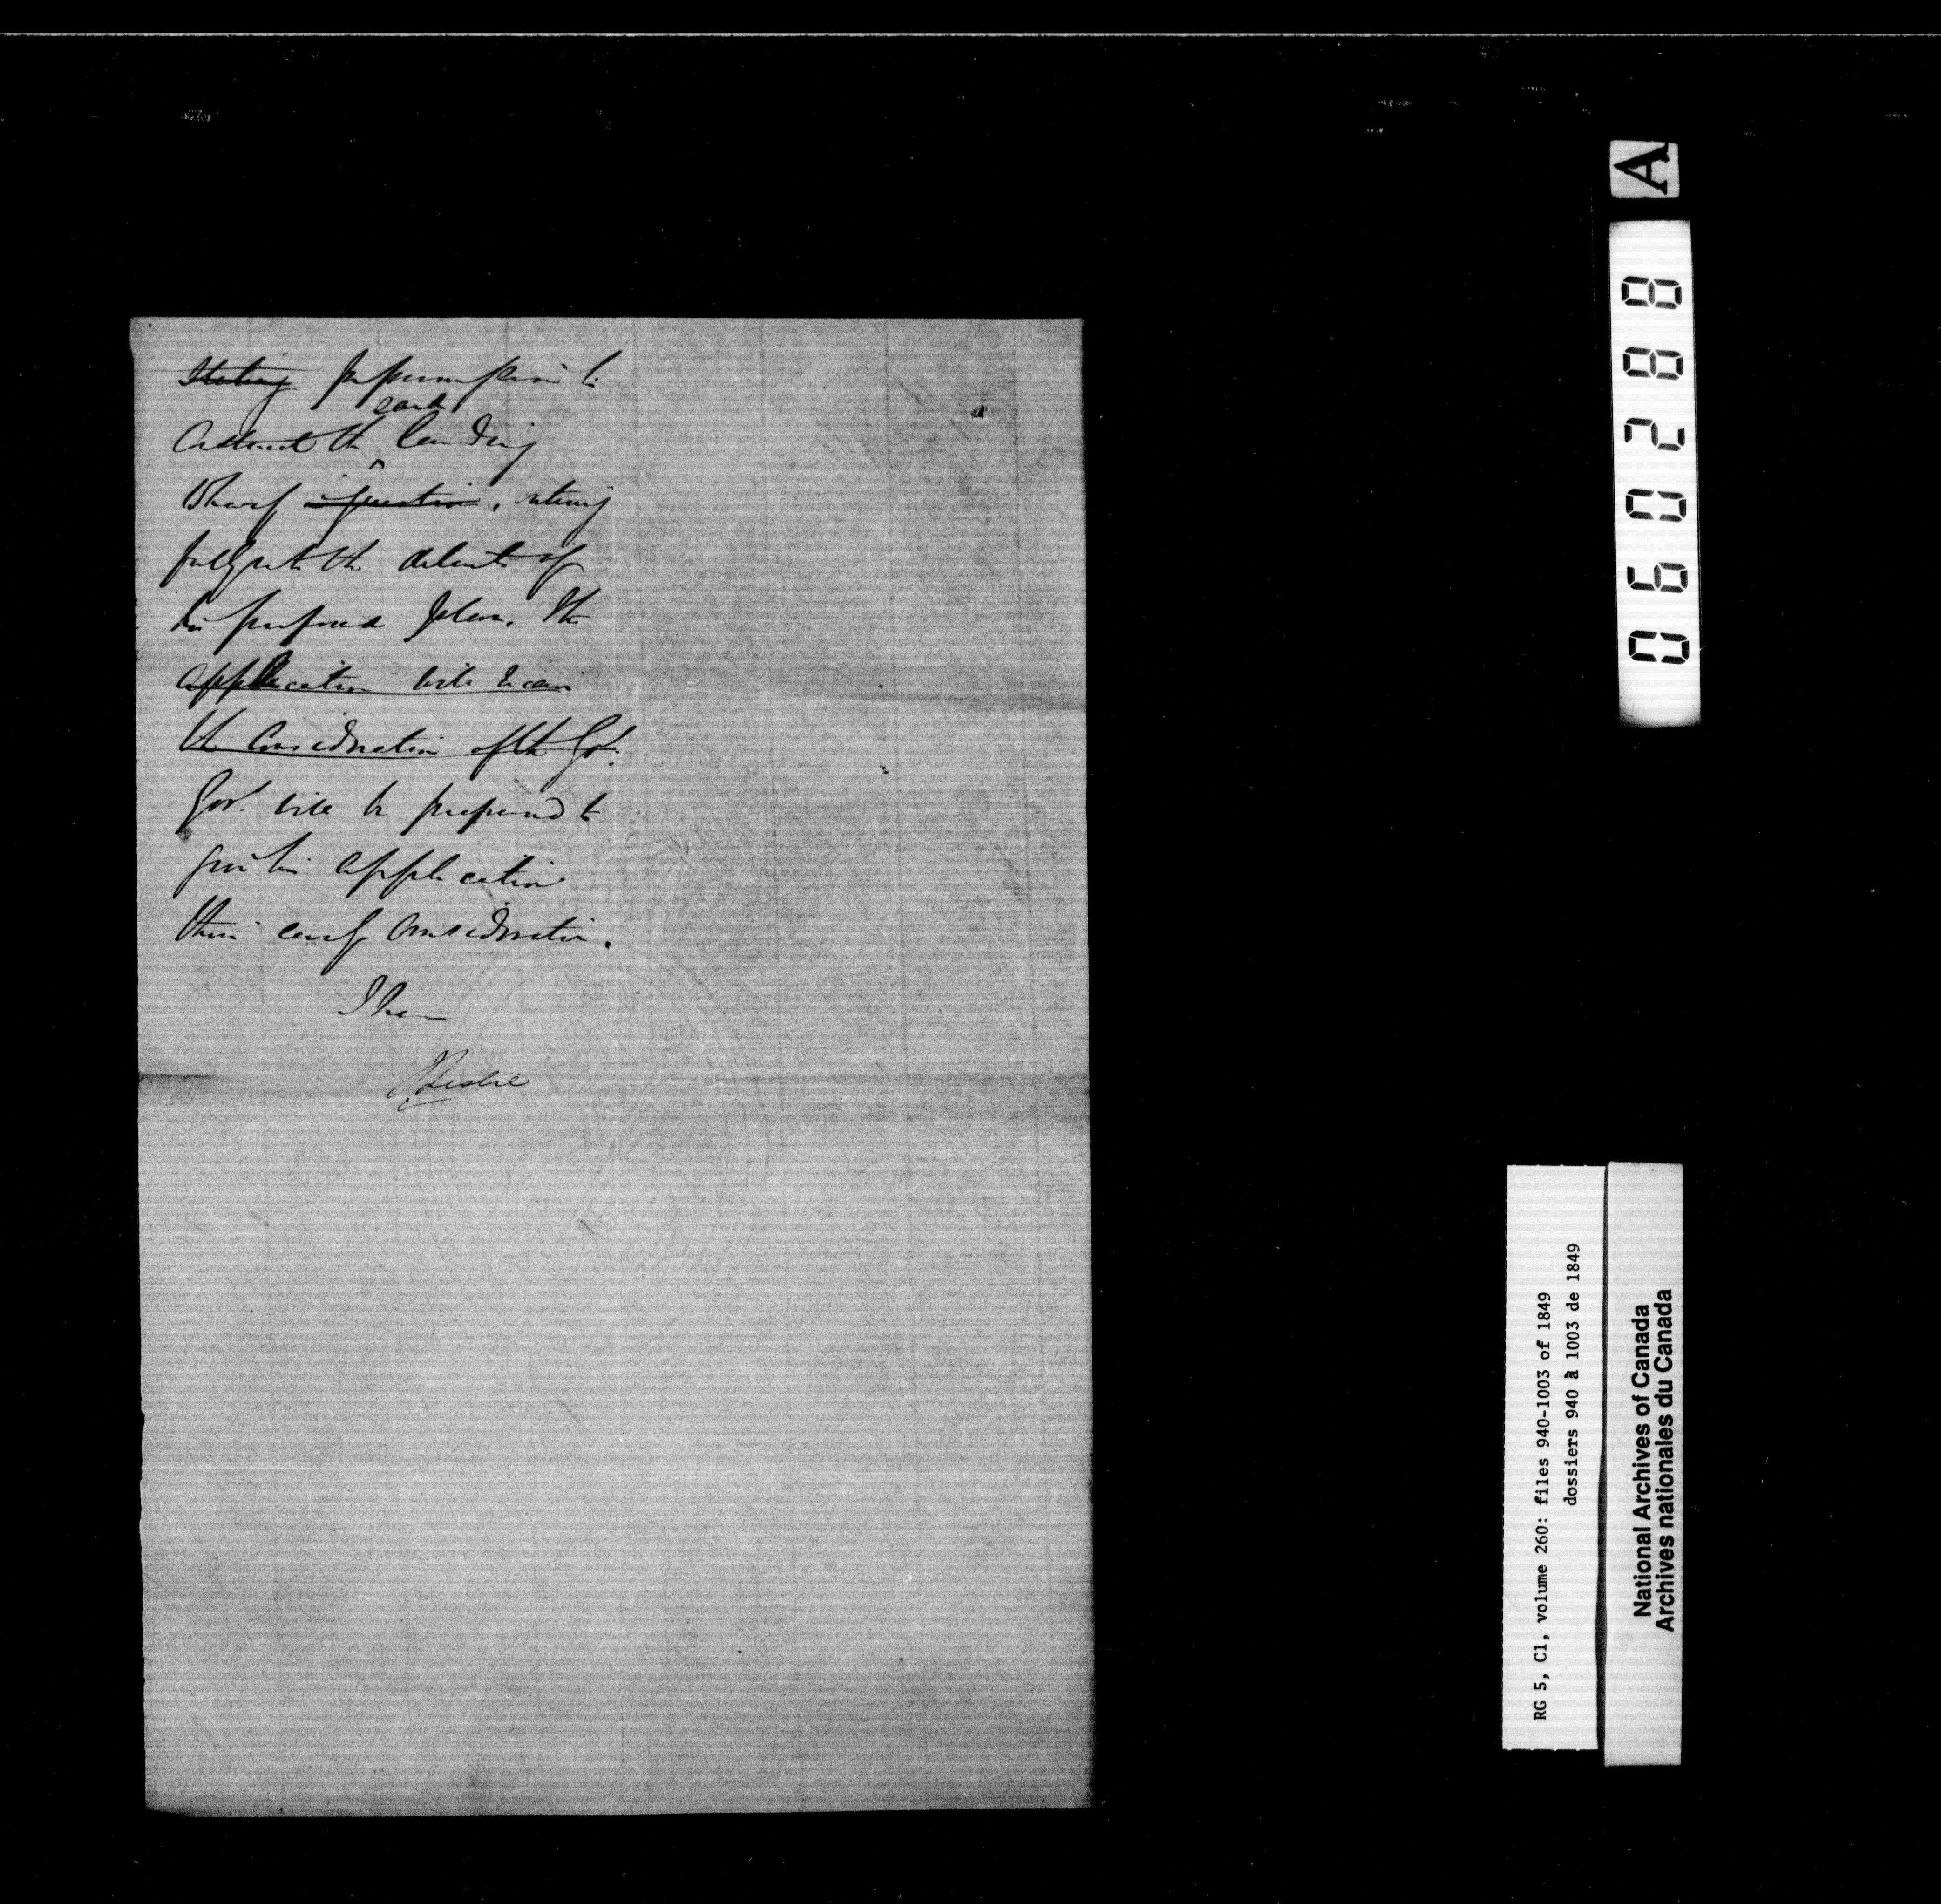 Stating for permission to
construct the said landing
Wharf in question, stating
fully all the details of
his proposed plan. The
application will receive
the consideration of the Govt.
Govt. will be prepared to
give his application
their early consideration.
I have
J Leslie
A
060288
RG 5, C1, volume 260: files 940-1003 of 1849
dossiers 940 à 1003 de 1849
National Archives of Canada
Archives nationales du Canada